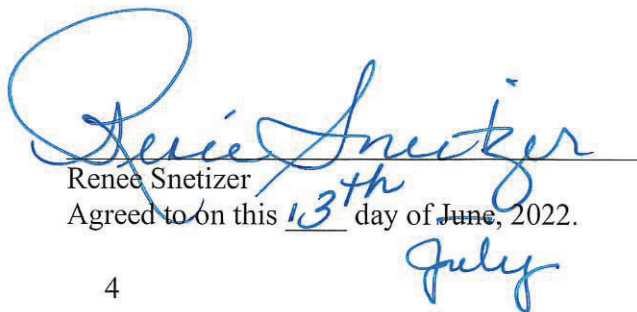 Renee Snetizer
Renee Snetizer
Agreed to on this 13th day of June, 2022.
July
4